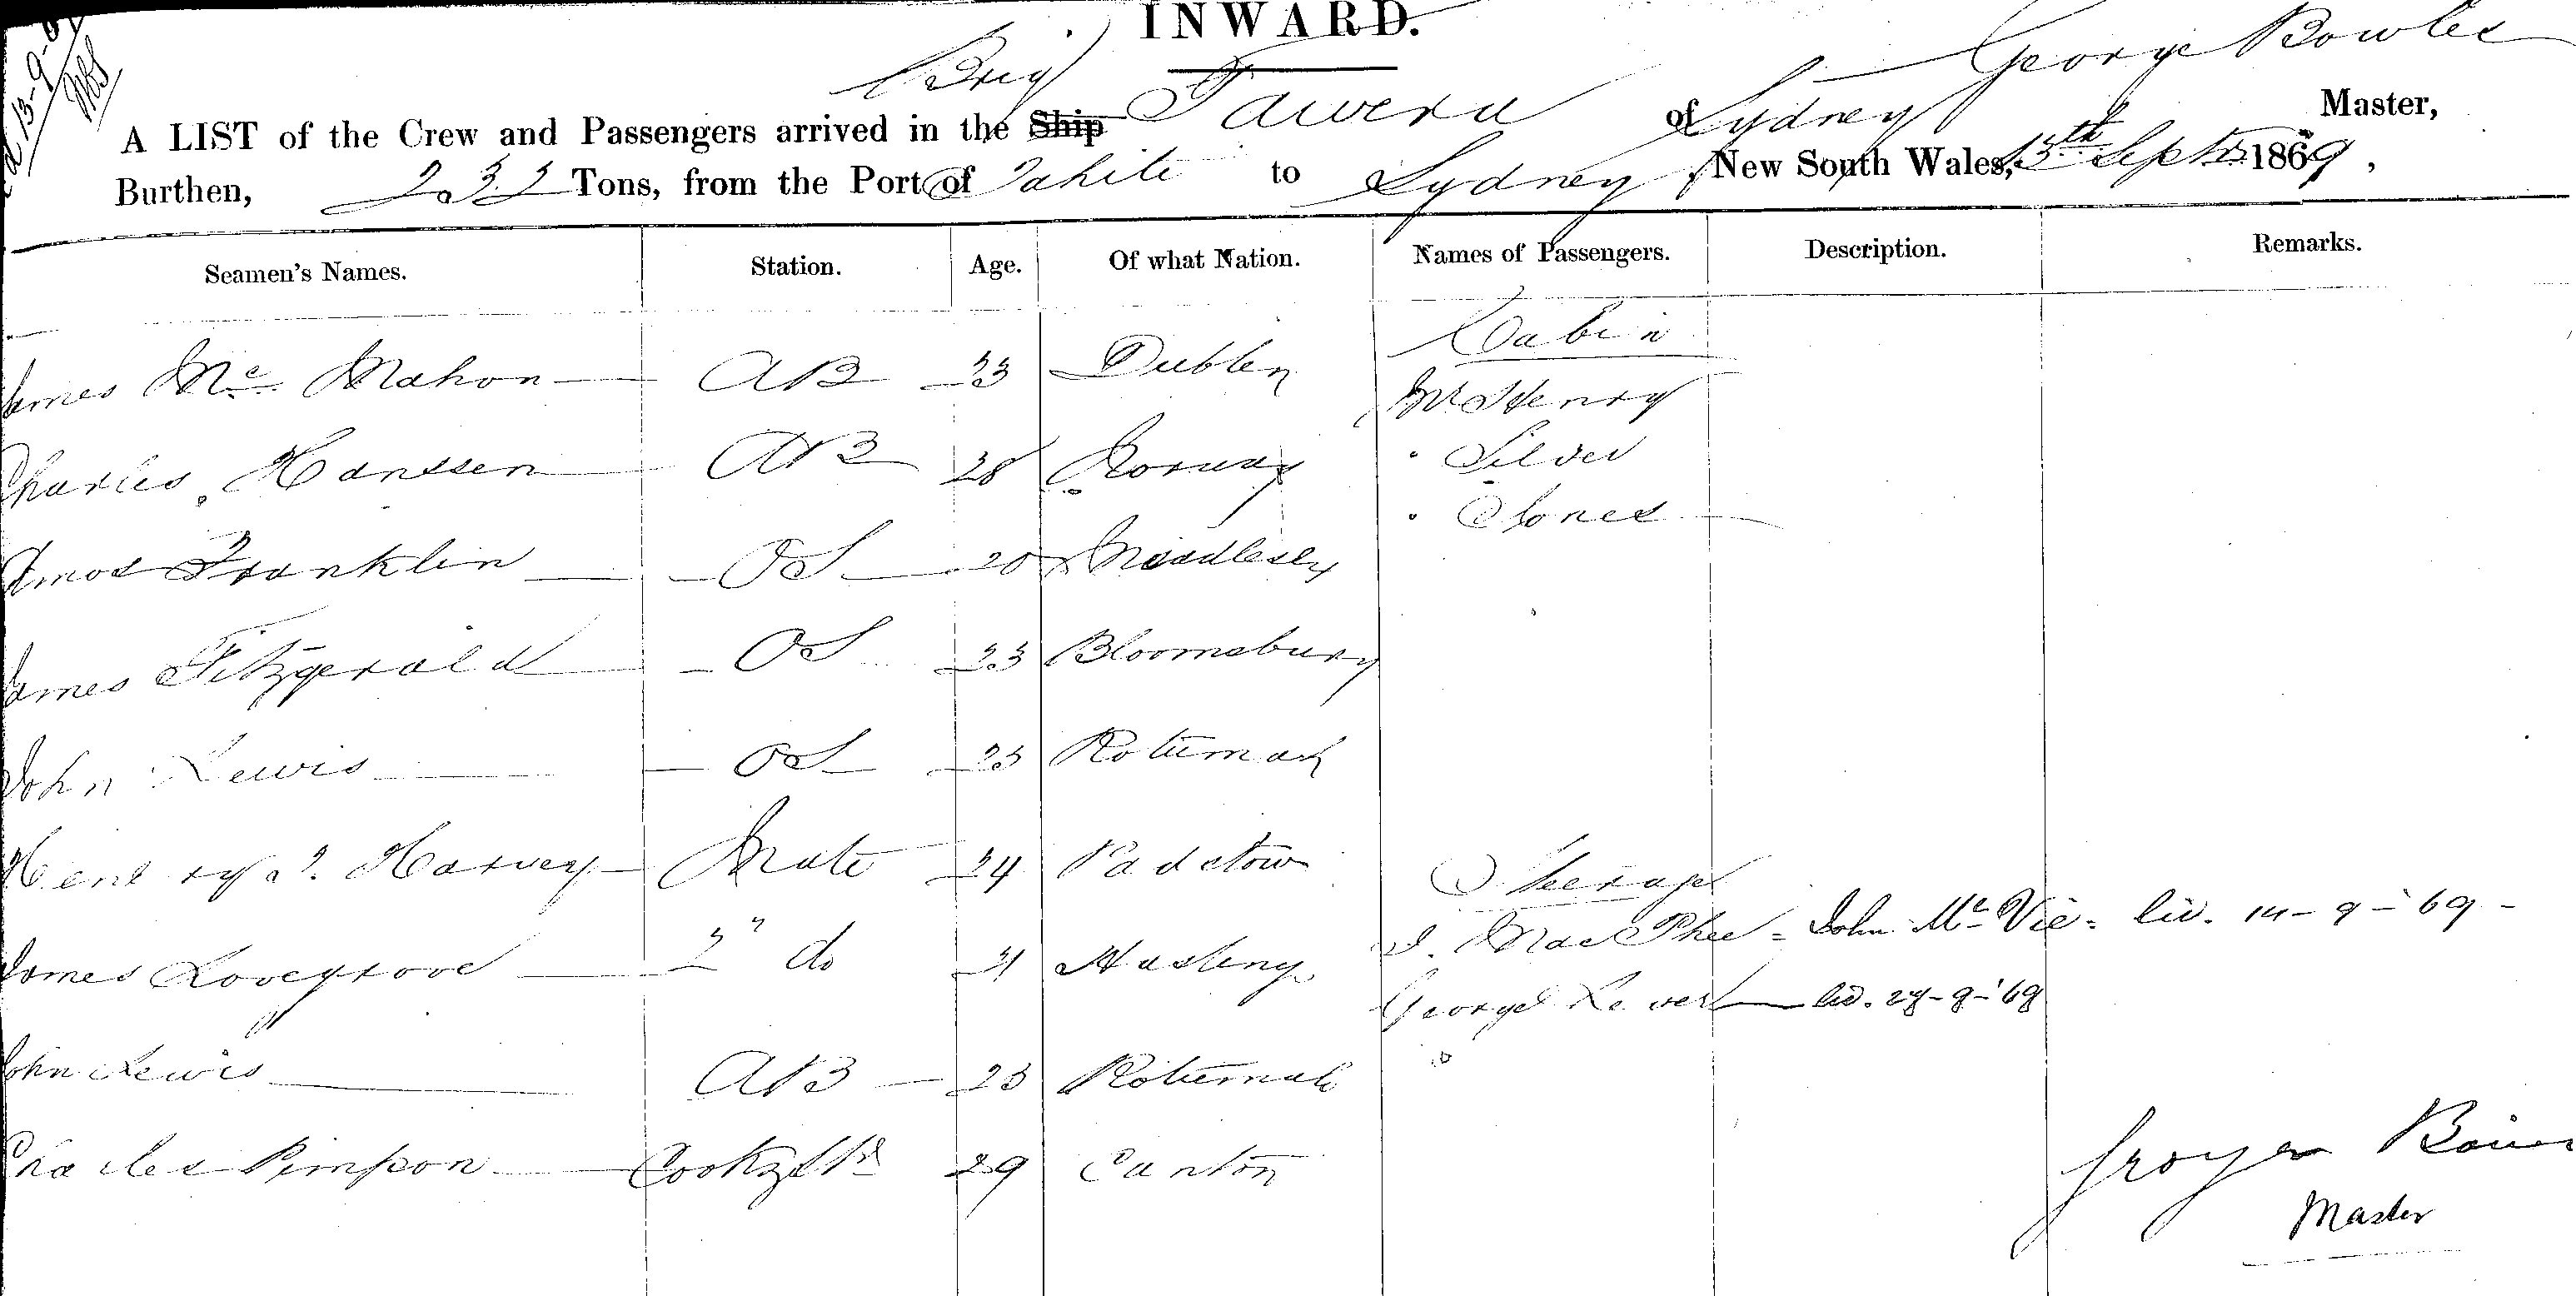 INWARD.
Brig George Bowles
A LIST of the Crew and Passengers arrived in the Ship Tawera of Sydney Master,
Burthen, 233 Tons, from the Port of Tahiti to Sydney New South Wales, 13th Septr 1869,
Seamen's Names. Station. Age. Of what Nation. Names of Passengers. Description. Remarks.
Cabin
James Mc Mahon AB 23 Dublin Mr Henry
Charles Hanssen AB 28 Norway " Silver
Amos Franklin OS 20 Middlesex " Jones
James Fitzgerald OS 23 Bloomsbury
John Lewis OS 23 Rotumah
Henry Harvey Mate 24 Padstow Steerage
James Lovegrove 2" do 21 Hastings J. MacPhee - John Mc Vie - liv. 14-9-'69-
George lid. 29-9-'69
John Lewis AB 23 Rotumah
Charles Pimpon Cook & Std 29 Canton
Master